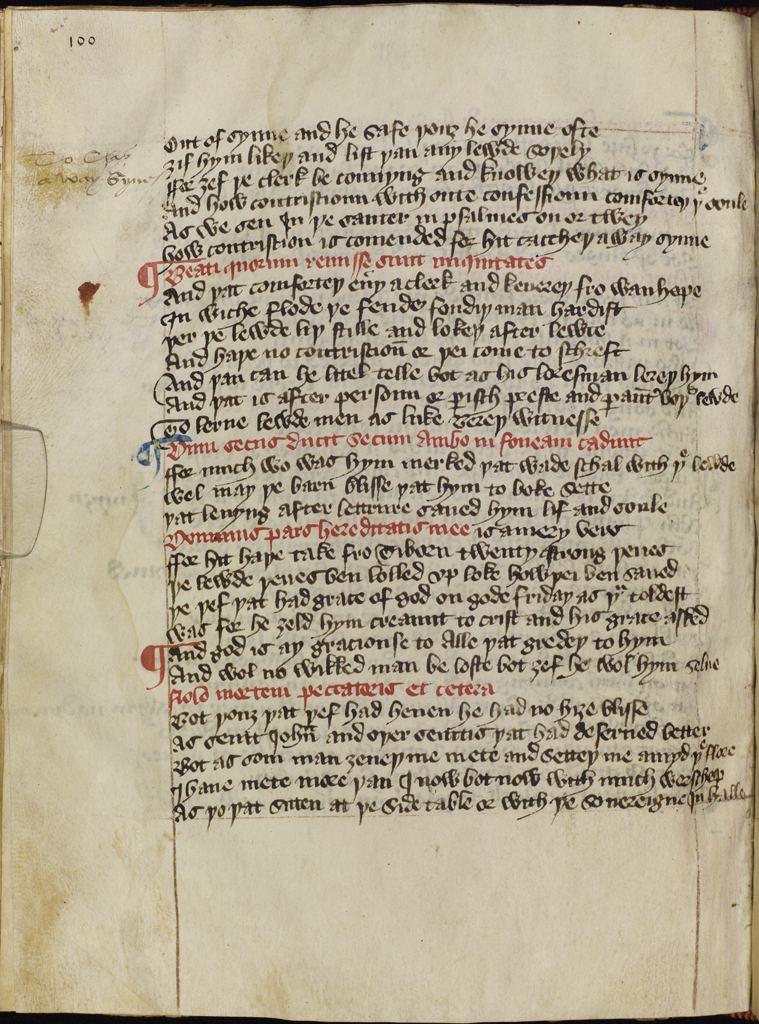 100
Out of synne and he safe þouȝ he synne ofte
To Chas
away Synne
ȝif hym likeþ and list þan any lewde soþely
ffor ȝef þe clerk be connyng and knoweþ what is synne
And how contristioun with oute confessioun comforteþ þe soule
As we sen In þe sauter in psalmes on or twey
how contristion is comended for hit caccheþ away synne
¶ Beati quorum remisse sunt iniquitates
And þat comforteþ eny a clerk and kevereþ fro wanhope
In wiche flode þe fende fondiþ man hardist
þer þe lewde liþ stille and lokeþ after lewte
And haþe no contristioun or þei come to schrift
And þan can he litel telle bot as his loresman lereþ hym
And þat is after persoun or parisch preste and paunter boþe lewde
To lerne lewde men as luke bereþ witnesse
¶ Dum cecus ducit secum Ambo in foueam cadunt
ffor much wo was hym merked þat wade schal with þe lewde
wel may þe barn blisse þat hym to boke sette
þat leuyng after lettrure saued hym lif and soule
Dominus pars hereditatis mee is a mery vers
ffor hit haþe take fro Tiborn twenty strong þeues
þe lewde þeues ben lolled vp loke how þei ben saued
þe þef þat had grace of god on gode friday as þu toldest
was for he ȝeld hym creaunt to crist and his grace asked
¶ And god is ay graciouse to Alle þat gredeþ to hym
And wol no wikked man be loste bot ȝef he wol hym selue
Nolo mortem peccatoris et cetera
Bot þouȝ þat þef had heuen he had no hiȝe blisse
As seint John and oþer seintis þat had deserued better
Bot as som man ȝeueþ me mete and setteþ me amyd þe flore
I haue mete more þan I now bot now with much worschep
As þo þat sitten at þe side table or with þe souereigne in halle